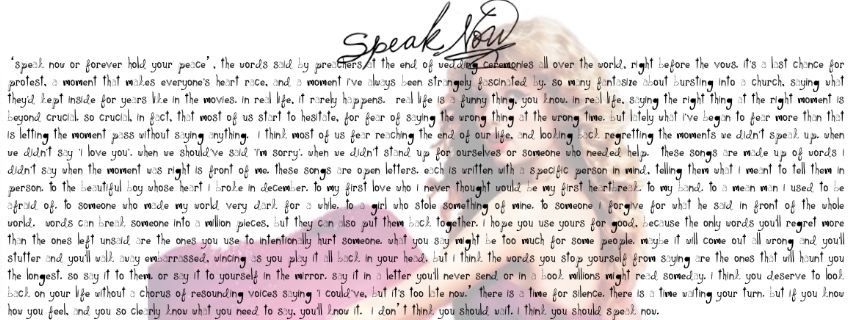 Speak Now
"speak now or forever hold your peace", the words said by preachers at the end of wedding ceremonies all over the world, right before the vows. it's a last chance for
protest, a moment that makes everyone's heart race, and a moment i've always been strangely fascinated by. so many fantasize about bursting into a church, saying what
they'd kept inside for years like in the movies. in real life, it rarely happens. real life is a funny thing, you know. in real life, saying the right thing at the right moment is
beyond crucial. so crucial, in fact, that most of us start to hesitate, for fear of saying the wrong thing at the wrong time. but lately what i've began to fear more than that
is letting the moment pass without saying anything. i think most of us fear reaching the end of our life, and looking back regretting the moments we didn't speak up. when
we didn't say 'i love you'. when we should've said 'i'm sorry'. when we didn't stand up for ourselves or someone who needed help. These songs are made up of words i
didn't say when the moment was right in front of me. these songs are open letters. each is written with a specific person in mind, telling them what i meant to tell them in
person. to the beautiful boy whose heart i broke in december. to my first love who i never thought would be my first heartbreak. to my band. to a mean man i used to be
afraid of. to someone who made my world very dark for a while. to a girl who stole something of mine. to someone i forgive for what he said in front of the whole
world. words can break someone into a million pieces, but they can also put them back together. i hope you use yours for good, because the only words you'll regret more
than the ones left unsaid are the ones you use to intentionally hurt someone. what you say might be too much for some people. maybe it will come out all wrong and you'll
stutter and you'll walk away embarrassed, wincing as you play it all back in your head. but i think the words you stop yourself from saying are the ones that will haunt you
the longest. so say it to them. or say it to yourself in the mirror. say it in a letter you'll never send or in a book millions might read someday. i think you deserve to look
back on your life without a chorus of resounding voices saying 'i could've, but it's too late now.' there is a time for silence. there is a time waiting your turn. but if you know
how you feel, and you so clearly know what you need to say, you'll know it. i don't think you should wait. i think you should speak now.